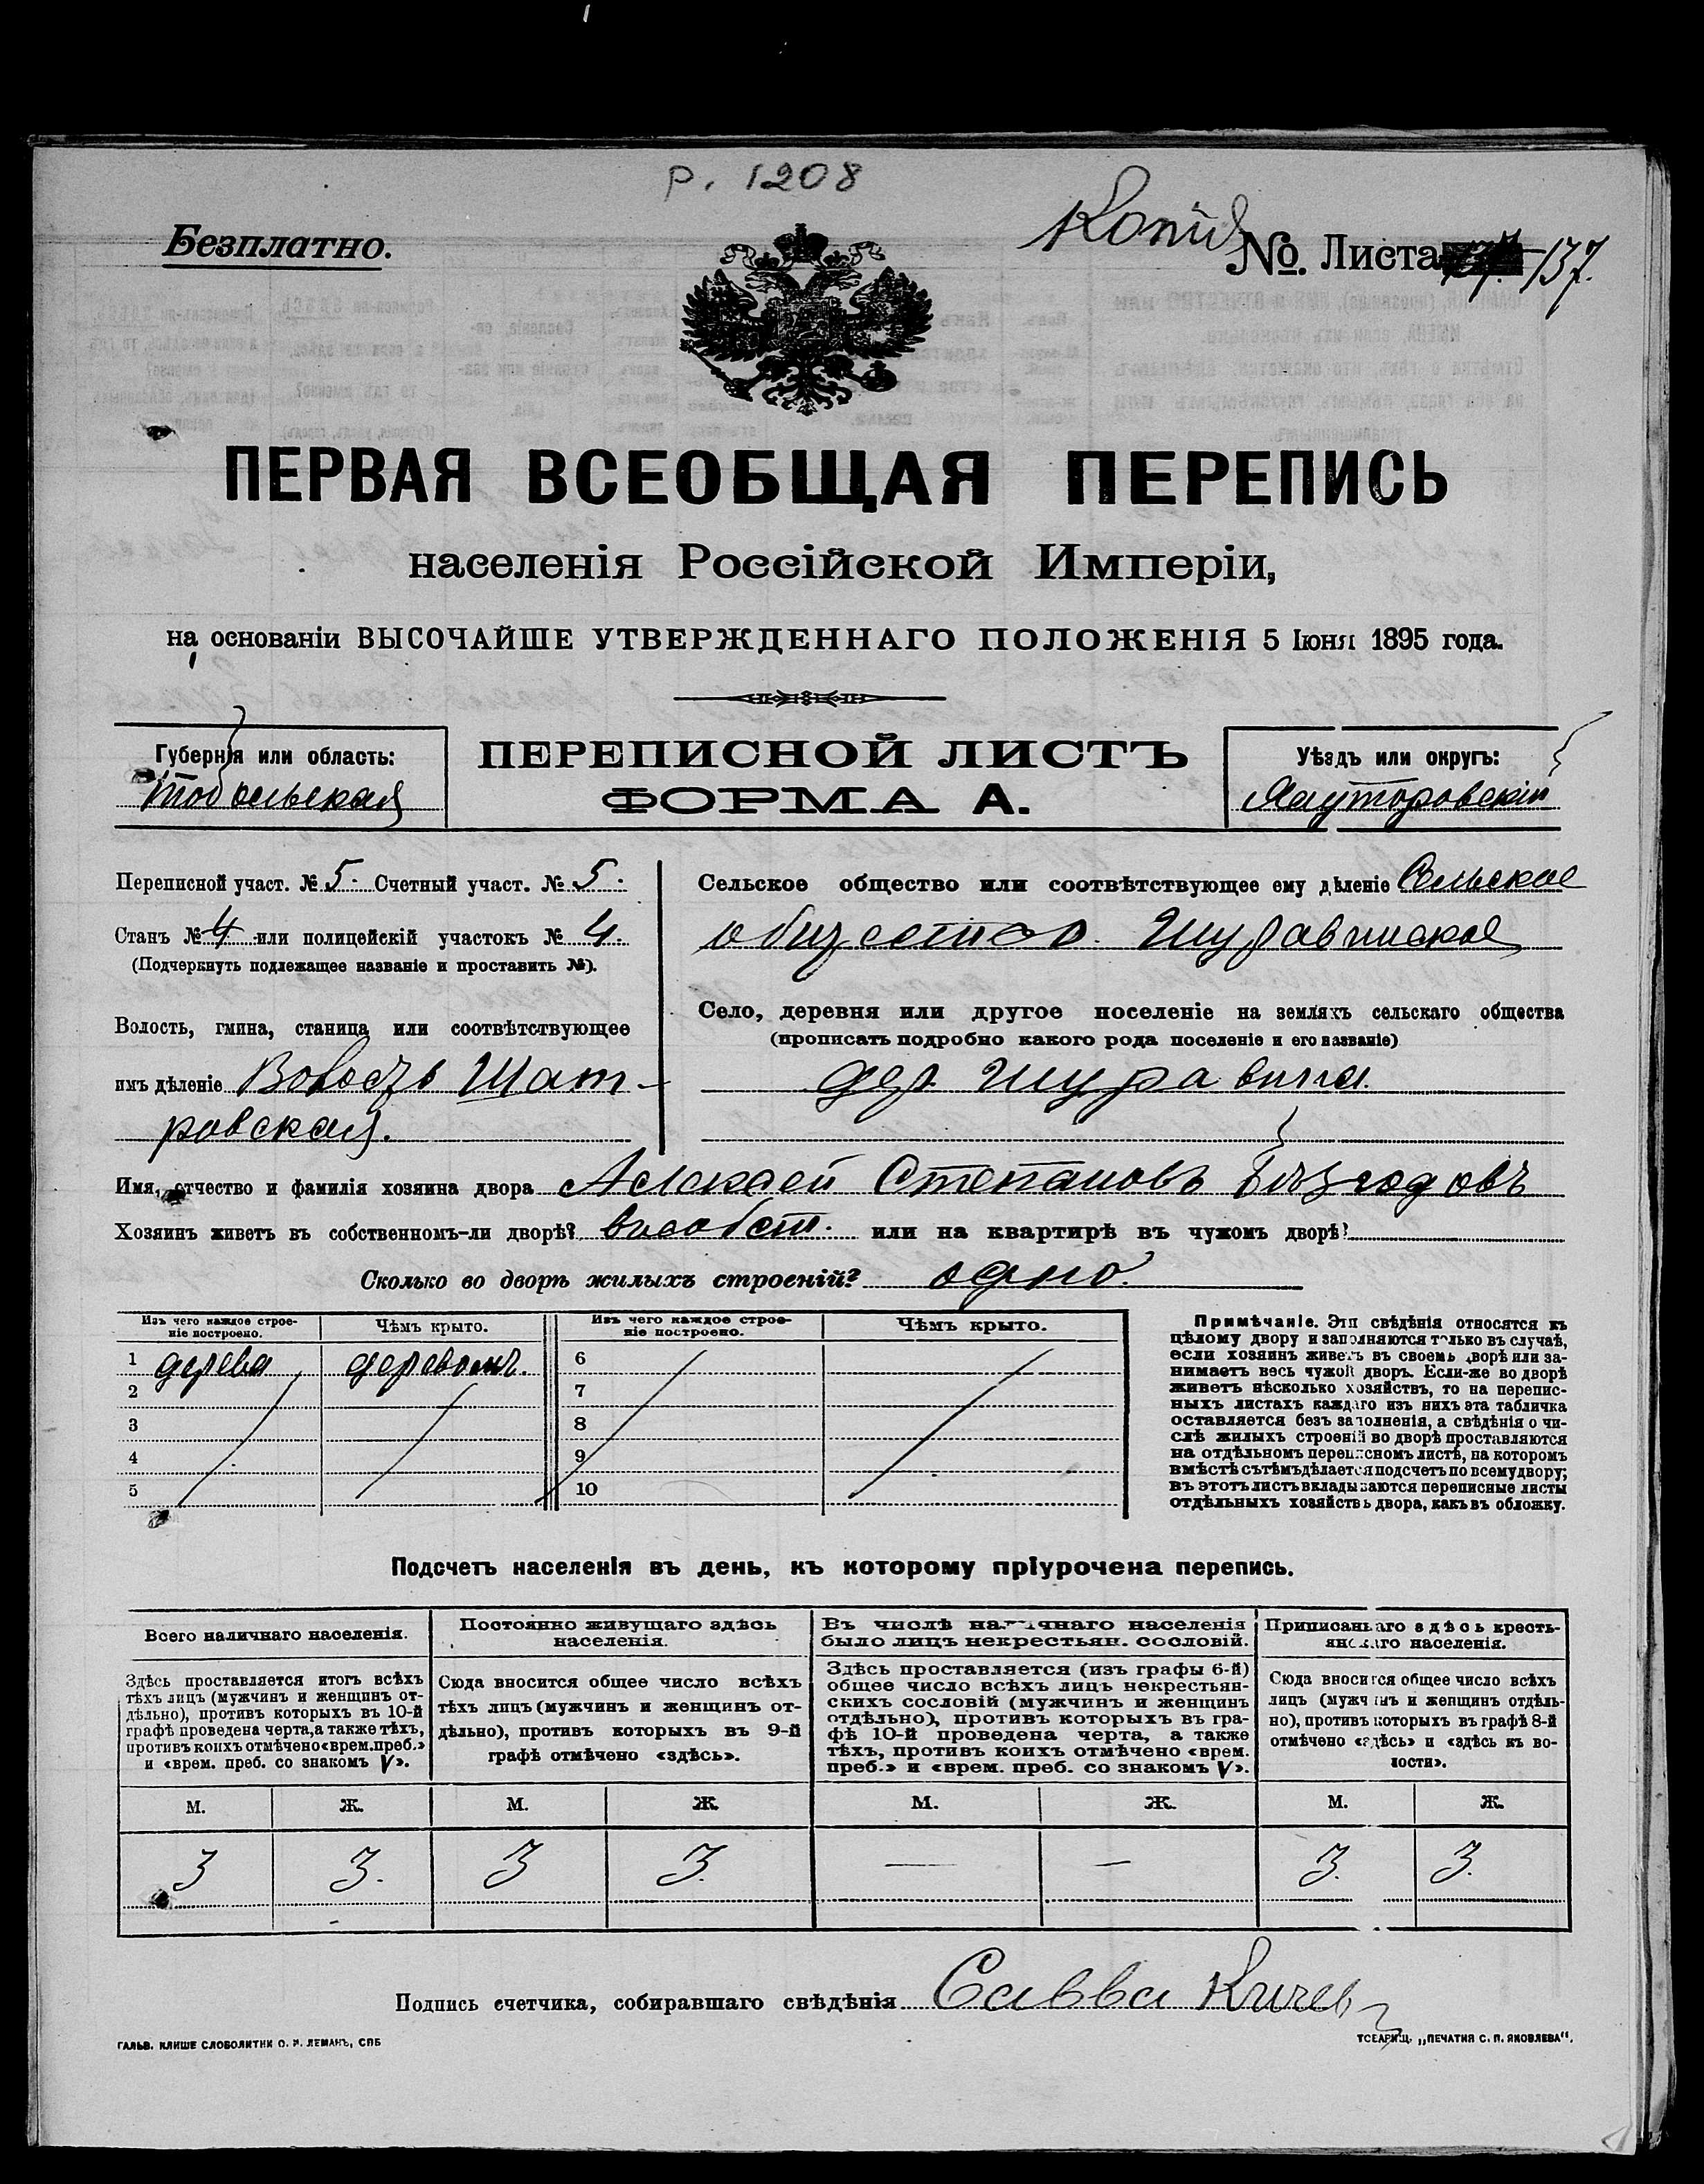 р. 1208
Безплатно.
Копія
№. Листа 137.
ПЕРВАЯ ВСЕОБЩАЯ ПЕРЕПИСЬ
населенія Россійской Имперіи,
на основаніи ВЫСОЧАЙШЕ УТВЕРЖДЕННАГО ПОЛОЖЕНІЯ 5 Іюня 1895 года.
Губернія или область:
Тобольская
ПЕРЕПИСНОЙ ЛИСТЪ
ФОРМА А.
Уѣздъ или округъ:
Ялуторовскій
Переписной участ. № 5. Счетный участ. № 5.
Станъ № 4 или полицейскій участокъ № 4.
(Подчеркнуть подлежащее названіе и проставить №).
Волость, гмина, станица или соотвѣтствующее
имъ дѣленіе Волость Шат-
ровская.
Сельское общество или соотвѣтствующее ему дѣленіе Сельское
общество. Шуравинское
Село, деревня или другое поселеніе на земляхъ сельскаго общества
(прописать подробно какого рода поселеніе и его названіе)
дер. Шуравина.
Имя, отчество и фамилія хозяина двора Алексей Степановъ
Хозяинъ живетъ въ собственномъ-ли дворѣ? в собст. или на квартирѣ въ чужомъ дворѣ?
Сколько во дворѣ жилыхъ строеній? одно.
Изъ чего каждое строе-
ніе построено.
Чѣмъ крыто.
Изъ чего каждое строе-
ніе построено.
Чѣмъ крыто.
1 дерева деревомъ. 6
2 7
3 8
4 9
5 10
Примѣчаніе. Эти свѣдѣнія относятся къ
цѣлому двору и заполняются только въ случаѣ,
если хозяинъ живетъ въ своемъ дворѣ или за-
нимаетъ весь чужой дворъ. Если-же во дворѣ
живетъ нѣсколько хозяйствъ, то на перепис-
ныхъ листахъ каждаго изъ нихъ эта табличка
оставляется безъ заполненія, а свѣдѣнія о чи-
слѣ жилыхъ строеній во дворѣ проставляются
на отдѣльномъ переписномъ листѣ, на которомъ
вмѣстѣ съ тѣмъ дѣлается подсчетъ по всему двору;
въ этотъ листъ вкладываются переписные листы
отдѣльныхъ хозяйствъ двора, какъ въ обложку.
Подсчетъ населенія въ день, къ которому пріурочена перепись.
Всего наличнаго населенія.
Здѣсь проставляется итогъ всѣхъ
тѣхъ лицъ (мужчинъ и женщинъ от-
дѣльно), противъ которыхъ въ 10-й
графѣ проведена черта, а также тѣхъ,
противъ коихъ отмѣчено «врем. преб.»
и «врем. преб. со знакомъ V».
Постоянно живущаго здѣсь
населенія.
Сюда вносится общее число всѣхъ
тѣхъ лицъ (мужчинъ и женщинъ от-
дѣльно), противъ которыхъ въ 9-й
графѣ отмѣчено «здѣсь».
Въ числѣ наличнаго населенія
было лицъ некрестьян. сословій.
Здѣсь проставляется (изъ графы 6-й)
общее число всѣхъ лицъ некрестьян-
скихъ сословій (мужчинъ и женщинъ
отдѣльно), противъ которыхъ въ гра-
фѣ 10-й проведена черта, а также
тѣхъ, противъ коихъ отмѣчено «врем.
преб.» и «врем. преб. со знакомъ V».
Приписаннаго здѣсь кресть-
янскаго населенія.
Сюда вносится общее число всѣхъ
лицъ (мужчинъ и женщинъ отдѣль-
но), противъ которыхъ въ графѣ 8-й
отмѣчено «здѣсь» и «здѣсь къ во-
лости».
М. Ж. М. Ж. М. Ж. М. Ж.
3 3. 3 3. — — 3. 3.
Подпись счетчика, собиравшаго свѣдѣнія Савва
ГАЛЬВ. КЛИШЕ СЛОВОЛИТНИ О. И. ЛЕМАНЪ, СПБ
ТОВАРИЩ. „ПЕЧАТНЯ С. П. ЯКОВЛЕВА“.